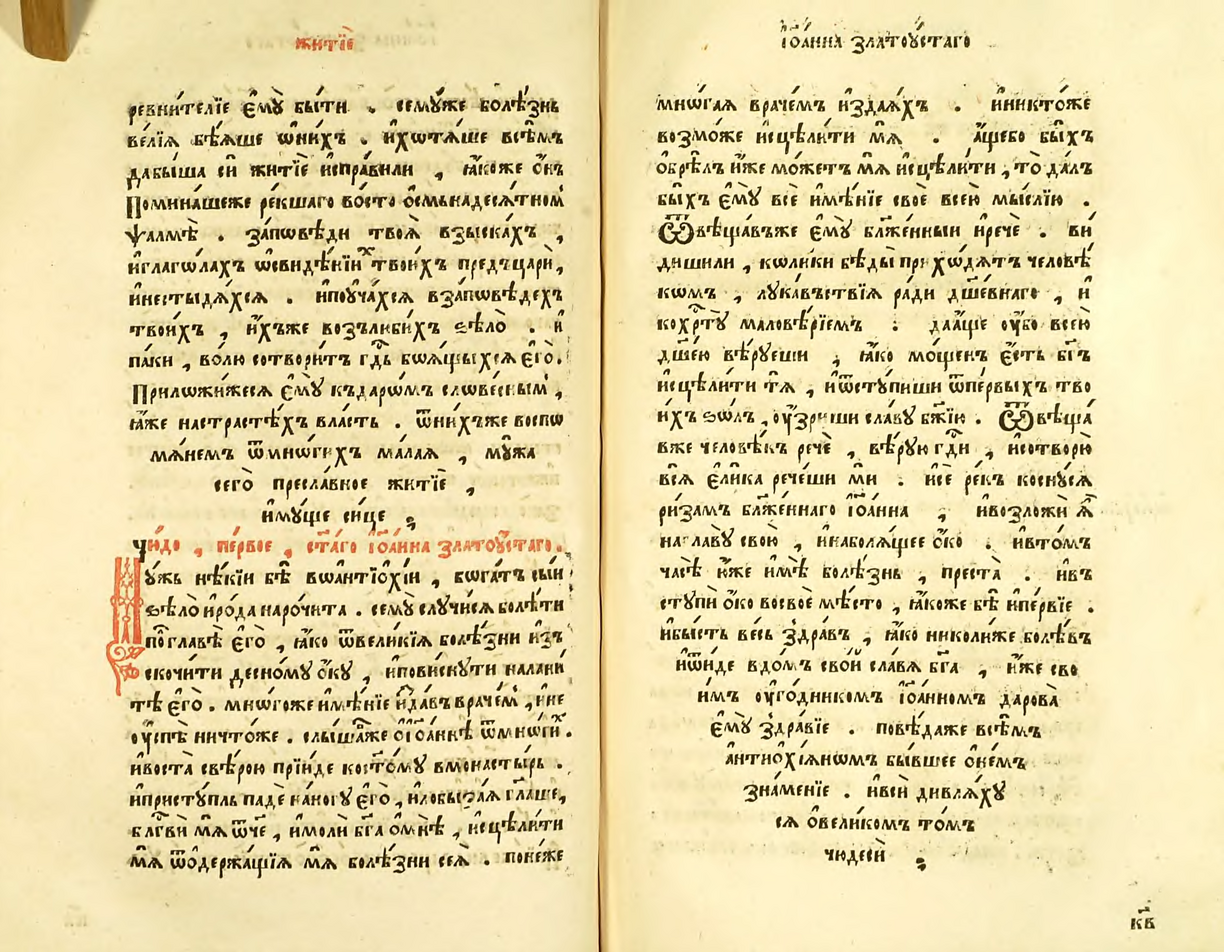 житїѐ
ревни́телїе є҆мꙋ̀ бы́ти . семꙋ́же болѣ́знь
ве́лїѧ бѣ́ѧше ѡ҆ни́хъ . и҆хѡтѧ́ше всѣ́мъ
дабы́ша сѝ житїѐ и҆спра́вили , ꙗ҆́коже ѻ҆́нъ
Помина́шеже ре́кшаго восто̀ ѻ҆смьна́десѧтном
ѱалмѣ̀ . за́пѡвѣди твоѧ̀ взыска́хъ ,
и҆глаго́лахъ ѡ҆свидѣ́нїи твои́хъ пред̾цари̑,
и҆нестыдѧ́хсѧ . и҆поꙋча́хсѧ вза́пѡвѣдехъ
твои́хъ , и҆́хъже возълюби́хъ ѕѣлѡ̀ . и҆
па́ки , во́лю сотвори́тъ гд҇ь боѧ́щыхсѧ є҆гѡ̀.
Прилѡжи́жесѧ є҆мꙋ̀ къдарѡ́мъ слѡве́сным ,
ꙗ҆́же настрасте́хъ вла́сть . ѿни́хъже воспѡ
мѧне́мъ ѿмнѡ́гихъ ма́лаѧ , мꙋ́жа
сегѡ̀ пресла́вное житїѐ ,
и҆мꙋ́ще си́це ;
чю́до , пе́рвое , ст҃а́гѡ і҆ѡа́нна златоꙋ́стагѡ .
Мꙋ́жь нѣ́кїи бѣ̀ вѡа҆нтїѡхі́и , бѡга́тъ сы́и
ѕѣлѡ̀ и҆ро́да нарочи́та . семꙋ̀ слꙋчи́сѧ болѣ́ти
поглавѣ̀ є҆гѡ̀ , ꙗ҆́кѡ ѿвели́кїѧ болѣ́зни и҆зъ
скочи́ти десно́мꙋ ѻ҆́кꙋ , и҆пови́снꙋти налани́
тѣ є҆гѡ̀ . мнѡ́гоже и҆мѣ́нїе и҆да́въ враче́м , и҆не
ᲂу҆спѣ̀ ничто́же . слы́шаже о҆і҆ѡа́ннѣ ѿмно́гих .
и҆воста̀ свѣ́рою прїи́де костᲂ́мꙋ вмонасты́рь .
и҆пристꙋ́пль падѐ нано́гꙋ є҆гѡ̀ , и҆лобыза́ѧ гл҃аше ,
блг҇ви̑ мѧ̀ ѻ҆́ч҃е , и҆молѝ бг҃а ѻ҆мнѣ̀ , и҆сцѣли́ти
мѧ̀ ѿѡдержа́щїѧ мѧ̀ болѣ́зни сеѧ̀ . поне́же
і҆ѡа́нна златоꙋ́стагѡ
мнѡ́гаѧ враче́мъ и҆здаѧ́хъ . и҆никто́же
возмо́же и҆сцѣли́ти мѧ̀ . а҆́щебо бы́хъ
ѻ҆брѣ́лъ и҆́же мо́жетъ мѧ̀ и҆сцѣли́ти , то да́лъ
бы́хъ є҆мꙋ̀ всѐ и҆мѣ́нїе своѐ все́ю мы́слїю .
Ѿвѣща́въже є҆мꙋ̀ бл҃же́нныи и҆речѐ . ви
дишили , кѡли́ки бѣ́ды прихо́дѧтъ человѣ́
кѡмъ , лꙋка́въствїѧ ра́ди дш҃е́внагѡ , и҆
кохр҇тꙋ̀ маловѣ́рїемъ : даа҆́ще ᲂу҆́бо все́ю
дш҃е́ю вѣ́рꙋеши , ꙗ҆́кѡ мо́щенъ є҆́сть бг҃ъ
и҆сцѣли́ти тѧ̀ , и҆ѿстꙋ́пиши ѿпе́рвыхъ тво
и́хъ ѕѡ́лъ , ᲂу҆́зриши сла́вꙋ бж҃їю . Ѿвѣща́
вже человѣ́къ речѐ , вѣ́рꙋю гд҇и , и҆сотворю̀
всѧ̀ є҆ли́ка рече́ши мѝ . и҆сѐ ре́къ коснꙋ́сѧ
ри́замъ бл҃же́ннаго і҆ѡа́нна , и҆возложѝ ѧ҆̀
на главꙋ̀ свою̀ , и҆наболѧ́щее ѻ҆́ко . и҆вто́мъ
ча́сѣ и҆́же и҆мѣ̀ болѣ́знь , преста̀ . и҆въ
стꙋпѝ ѻ҆́ко восвоѐ мѣ́сто , ꙗ҆́коже бѣ̀ и҆пе́рвїе .
и҆бы́сть ве́сь здра́въ , ꙗ҆́кѡ николи́же болѣ́въ
и҆ѿи́де вдо́мъ сво́й сла́вѧ бг҃а , и҆́же сво
и́мъ ᲂу҆го́дникомъ і҆ѡа́нномъ дарова̀
є҆мꙋ̀ здра́вїе . повѣ́даже всѣ́мъ
а҆нтиѻхі́ѧнѡмъ бы́вшее ѻ҆не́мъ
зна́менїе . и҆всѝ дивлѧ́хꙋ
сѧ ѻ҆вели́комъ то́мъ
чюдесѝ ;
кв҃